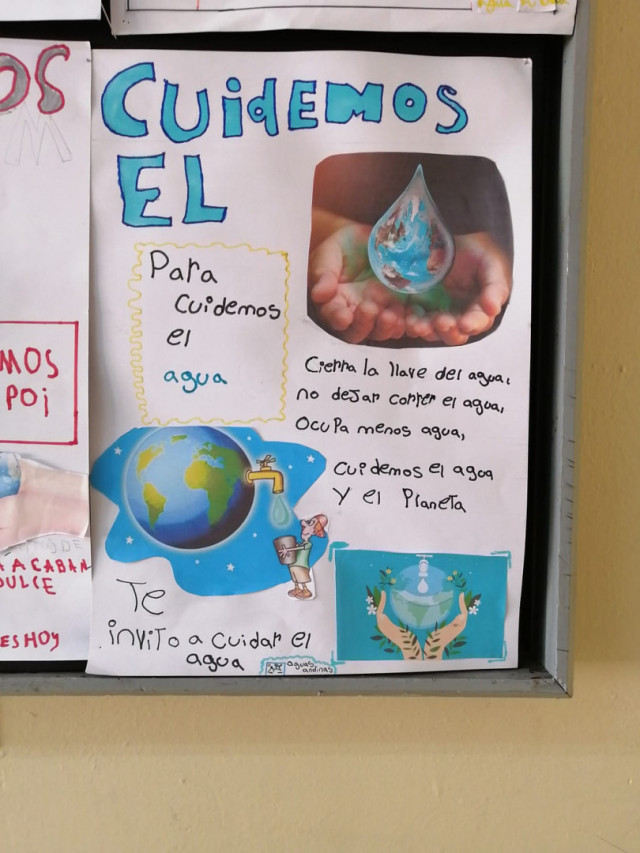 CUIDEMOS
EL
Para
Cuidemos
el
agua
Cierra la llave del agua,
no dejar correr el agua,
Ocupa menos agua,
cuidemos el agua
Y el Planeta
Te
invito a cuidar el
agua
aguas
andinas
OS
MOS
POi
DE
A ACABAN
DULCE
ES HOY